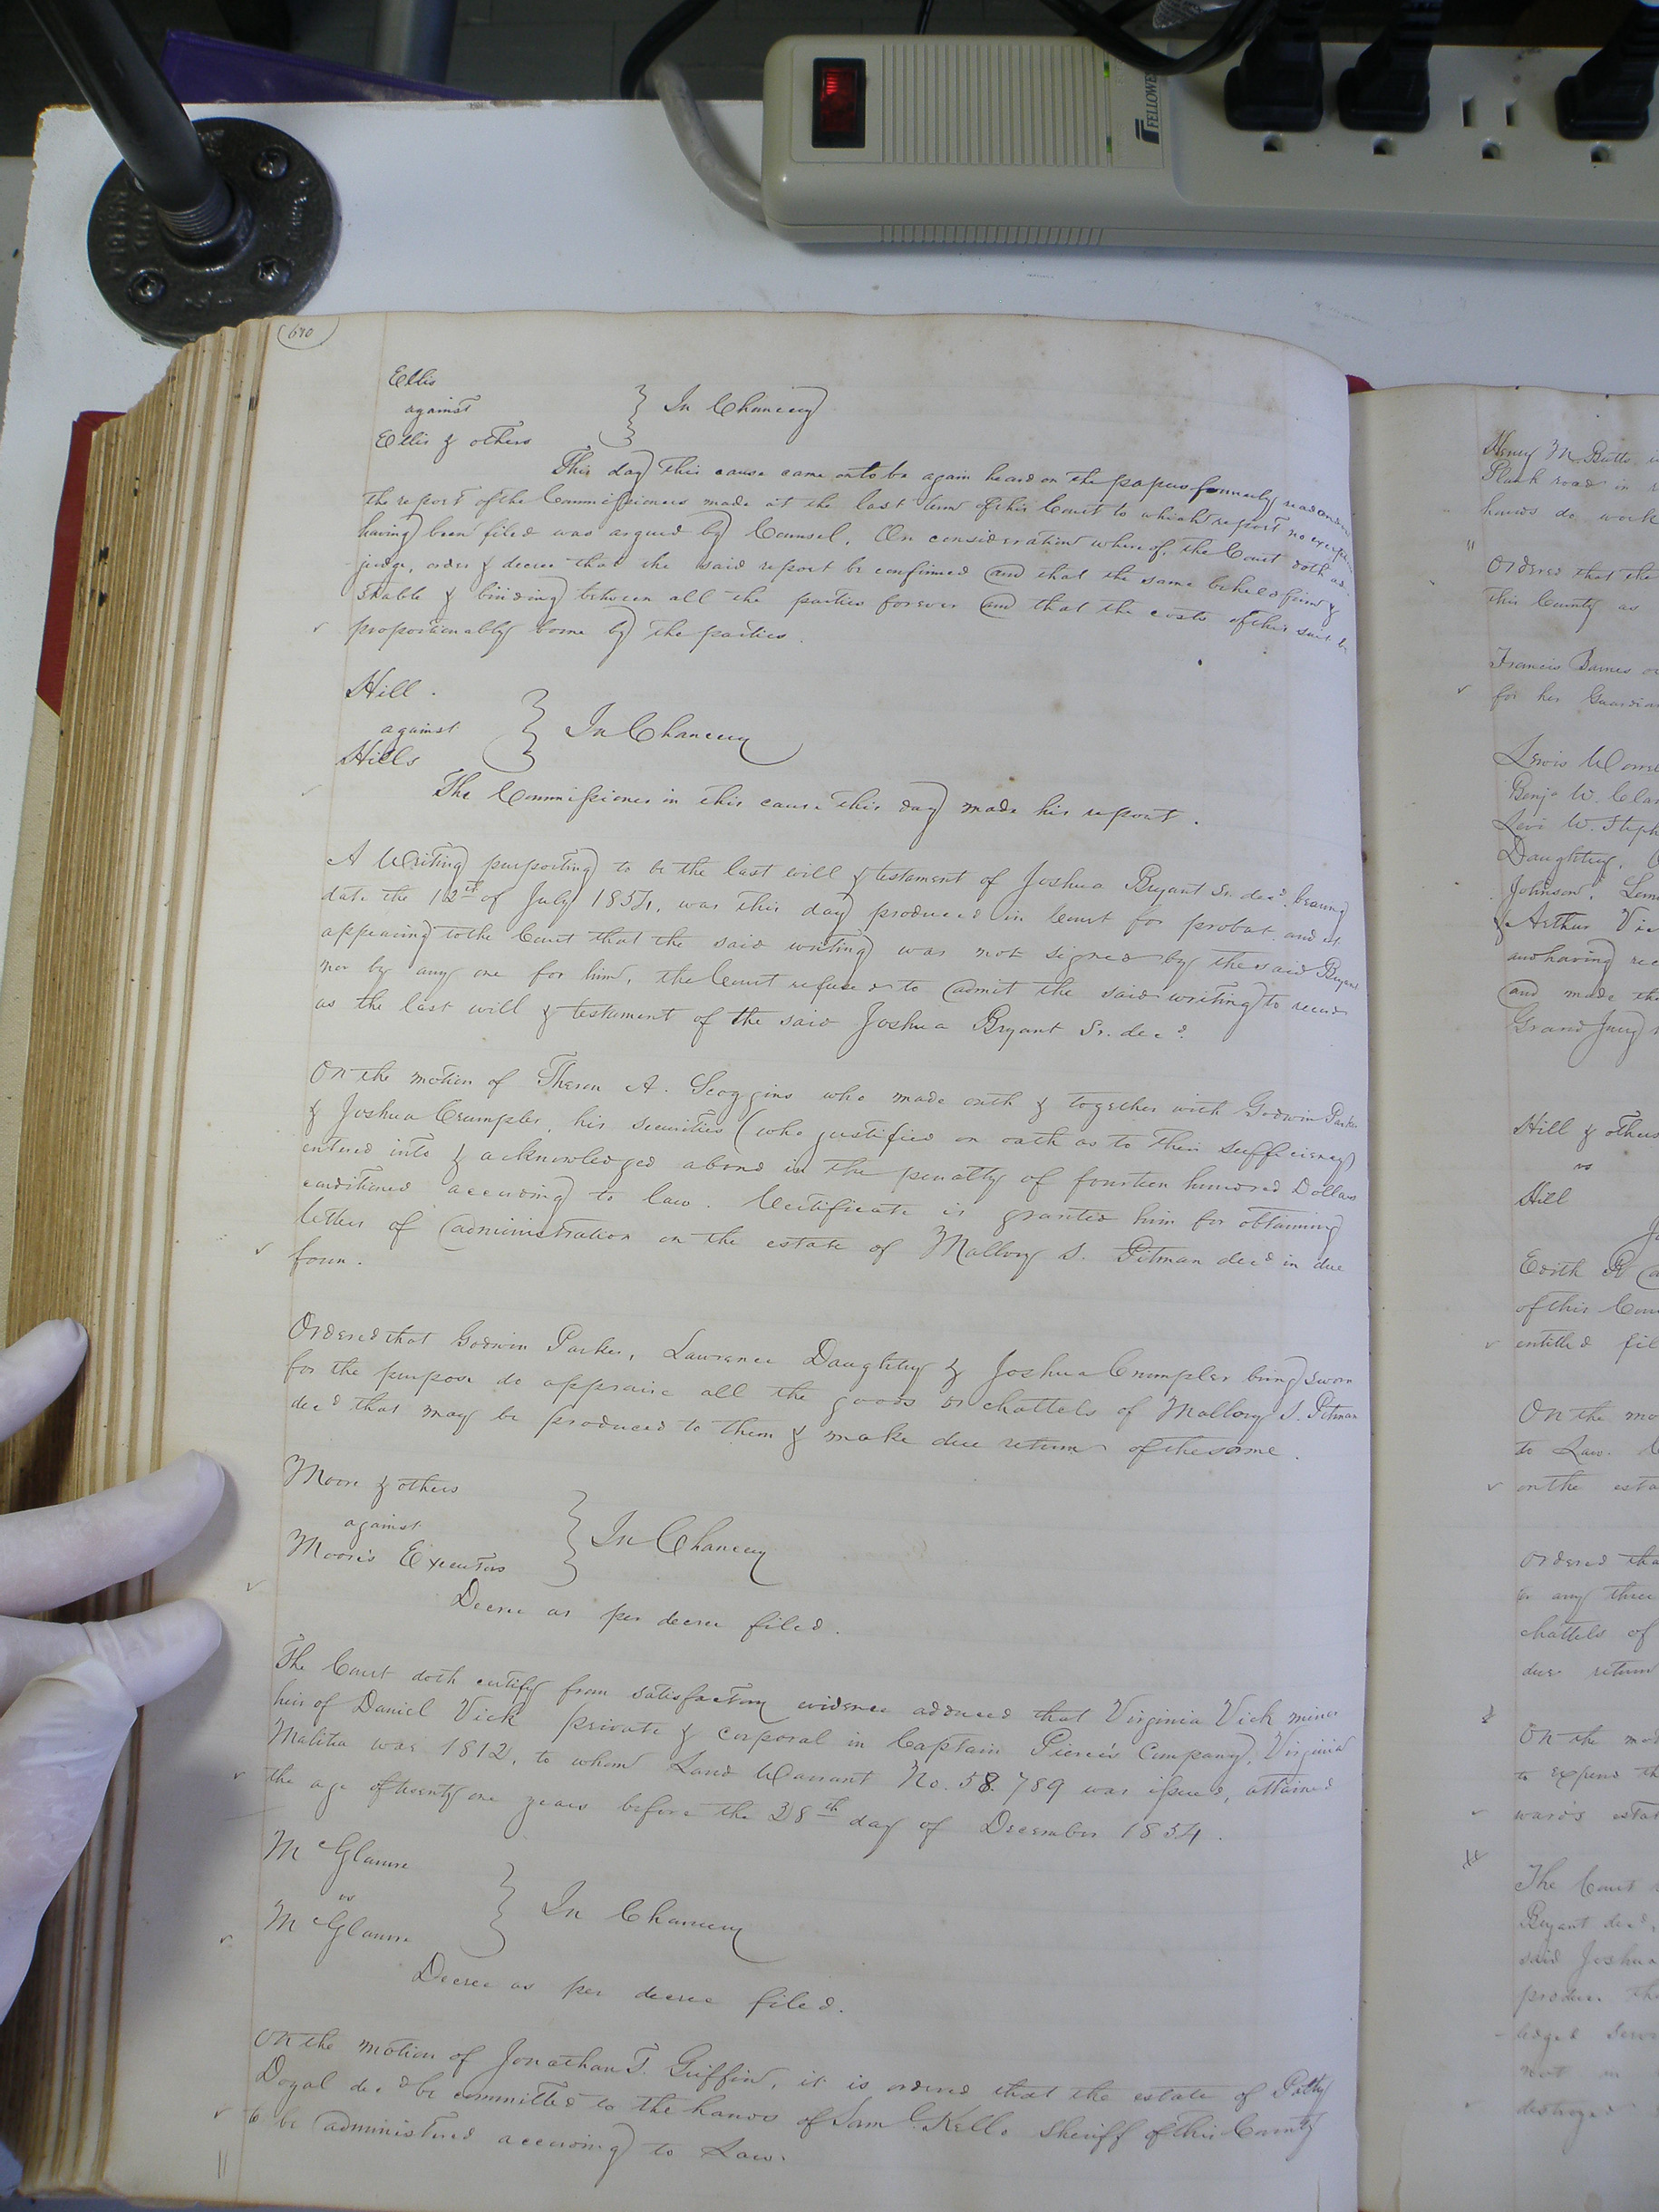 FELLOWES
640
Ellis
against
Ellis & others
In Chancery
This day this cause came on to be again heard on the papers formerly read and on
the report of the Commissioners made at the last term of this Court to which report no
having been filed was argued by Counsel. On consideration whereof, the Court doth ad-
judge, order & decree that the said report be confirmed and that the same be held firm &
stable & binding between all the parties forever and that the costs of this suit be
proportionally borne by the parties.
Hill.
against
Hills
In Chancery
The Commissioner in this cause this day made his report.
A Writing purporting to be the last will & testament of Joshua Bryant Sr. decd. bearing
date the 12th of July 1854, was this day produced in Court for probat and it
appearing to the Court that the said writing was not signed by the said Bryant
nor by any one for him, the Court refused to admit the said writing to record
as the last will & testament of the said Joshua Bryant Sr. decd.
On the motion of Theron A. Scoggins who made oath & together with Godwin Parker
& Joshua Crumpler, his securities (who justified on oath as to their sufficiency)
entered into & acknowledged a bond in the penalty of fourteen hundred Dollars
conditioned according to law. Certificate is granted him for obtaining
letters of administration on the estate of Mallory S. Pitman decd in due
form.
Ordered that Godwin Parker, Lawrence Daughtry & Joshua Crumpler being sworn
for the purpose do appraise all the goods or chattels of Mallory S. Pitman
decd that may be produced to them & make due return of the same.
Moore & others
against
Moore's Executors
In Chancery
Decree as per decree filed.
The Court doth certify from satisfactory evidence adduced that Virginia Vick minor
heir of Daniel Vick private & corporal in Captain Pierce's Company, Virginia
Malitia war 1812, to whom Land Warrant No. 58.789 was issued, attained
the age of twenty one years before the 28th day of December 1854.
McGlaune
vs
McGlaune
In Chancery
Decree as per decree filed.
On the motion of Jonathan T. Griffin, it is ordered that the estate of Patty
Doyal decd be committed to the hands of Sam C. Kello Sheriff of this County
to be administered according to Law.
Henry M. Butts
Plank road in
hands do work
Ordered that the
this County as
Francis Barnes
for her Guardian
Lewis
Benja W.
Levi W. Steph
Daughtry,
Johnson,
& Arthur
and having
and made
Grand Jury
Hill & others
vs
Hill
Edith
of this
entitled
On the mo
to Law.
on the esta
Ordered tha
or any three
chattels of
due return
On the mot
to expend th
ward's estat
The Court
Bryant decd,
said Joshua
produce the
not
destroyed